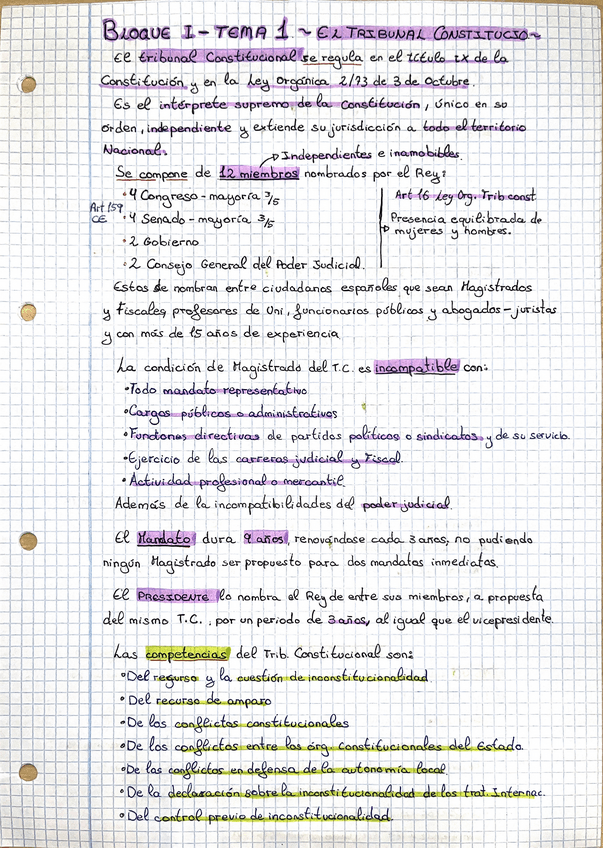 BLOQUE I - TEMA 1 ~ EL TRIBUNAL CONSTITUCIO~
El tribunal Constitucional se regula en el título IX de la
Constitución, y en la Ley Orgánica 2/73 de 3 de Octubre.
Es el intérprete supremo de la Constitución, único en su
orden, independiente y extiende su jurisdicción a todo el territorio
Nacional.
Independientes e inamobibles.
Se compone de 12 miembros nombrados por el Rey:
• 4 Congreso - mayoría 3/5
Art 16 Ley Org. Trib const.
Art 159 CE
• 4 Senado - mayoría 3/5
Presencia equilibrada de
mujeres y hombres.
• 2 Gobierno
• 2 Consejo General del Poder Judicial.
Estos se nombran entre ciudadanos españoles que sean Magistrados
y Fiscales, profesores de Uni, funcionarios públicos y abogados - juristas
y con más de 15 años de experiencia
La condición de Magistrado del T.C. es incompatible con:
• Todo mandato representativo
• Cargos públicos o administrativos
• Funciones directivas de partidos políticos o sindicatos y de su servicio.
• Ejercicio de las carreras judicial y Fiscal.
• Actividad profesional o mercantil.
Además de la incompatibilidades del poder judicial.
El Mandato dura 9 años, renovándose cada 3 años, no pudiendo
ningún Magistrado ser propuesto para dos mandatos inmediatos.
El PRESIDENTE lo nombra el Rey de entre sus miembros, a propuesta
del mismo T.C., por un periodo de 3 años, al igual que el vicepresidente.
Las competencias del Trib. Constitucional son:
• Del recurso y la cuestión de inconstitucionalidad
• Del recurso de amparo
• De los conflictos constitucionales
• De los conflictos entre los órg. Constitucionales del Estado.
• De los conflictos en defensa de la autonomía local.
• De la declaración sobre la inconstitucionalidad de los trat. Internac.
• Del control previo de inconstitucionalidad.